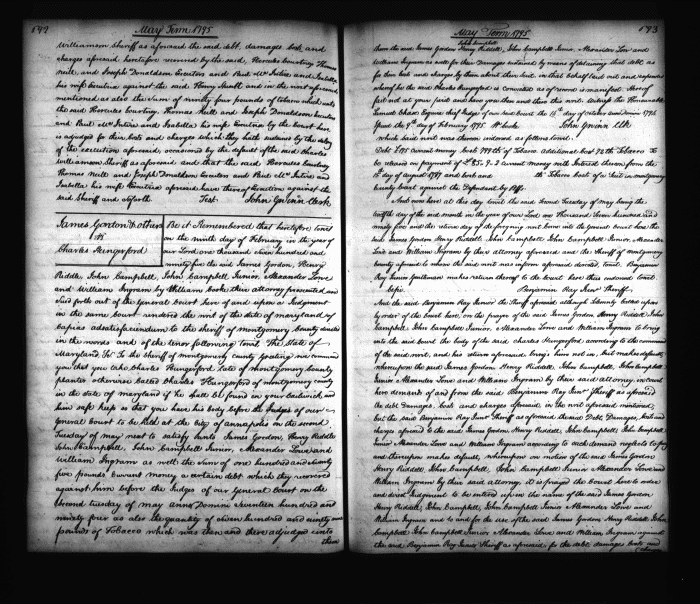 542
May Term 1795
Williamson Sheriff as aforesaid the said debt, damages, costs and
charges aforesaid heretofore recovered by the said, Hercules Courtney Thomas
Neill, and Joseph Donaldson Executors and Paul McIntire and Isabella
his wife Executrix against the said Henry and in the writ aforesaid
mentioned as also the sum of ninety four pounds of tobacco which unto
the said Hercules Courtney, Thomas Neill and Joseph Donaldson Executors
and Paul McIntire and Isabella his wife Executrix by the Court here
is adjudged for their costs and charges which they hath sustained by the delay
of the execution aforesaid, occasioned by the default of the said Charles
Williamson Sheriff as aforesaid and that the said Hercules Courtney
Thomas Neill and Joseph Donaldson Executors and Paul McIntire and
Isabella his wife Executrix aforesaid have thereof Execution against the
said Sheriff and so forth Test. John Gwinn Clerk
James Gordon & others
vs
Charles Hungerford
Be it Remembered that heretofore towit
on the ninth day of February in the year of
our Lord one thousand seven hundred and
ninety five the said James Gordon, Henry
Riddle, John Campbell, John Campbell Junior, Alexander Love
and William Ingram by William Cooke their attorney presented and
sued forth out of the General Court here of and upon a Judgment
in the same Court rendered the writ of the state of Maryland of
Capias ad satisfaciendum to the sheriff of Montgomery County directed
in the words and of the tenor following towit The State of
Maryland, To the Sheriff of Montgomery County Greeting we command
you that you take Charles Hungerford late of Montgomery County
planter otherwise called Charles Hungerford of Montgomery County
in the state of Maryland if he shall be found in your bailiwick and
him safe keep so that you have his body before the Judges of our
General Court to be held at the City of Annapolis on the second
Tuesday of May next to satisfy unto James Gordon, Henry Riddle
John Campbell, John Campbell Junior, Alexander Love and
William Ingram as well the sum of one hundred and ninety
five pounds Current money a certain debt which they recovered
against him before the Judges of our General Court on the
second tuesday of May anno Domini seventeen hundred and
ninety four as also the quantity of seven hundred and ninety
pounds of Tobacco which was then and there adjudged unto
them
May Term 1795
543
John Campbell
them the said James Gordon Henry Riddell, John Campbell Junior, Alexander Love and
William Ingram as well for their Damages sustained by means of detaining that debt as
for their costs and charges by them about their suit in that behalf laid out and expended
whereof he the said Charles Hungerford is convicted as of record is manifest. Hereof
fail not at your peril and have you then and there this writ. Witness the Honourable
Samuel Chase Esquire chief Judge of our said Court the 14th day of october anno Domini 1794
Issued the 9th day of February 1795. Wm Cooke John Gwinn Clk
which said writ was thereon endorsed as follows towit:
Debt £195 current money Costs of Tobacco additional Costs of Tobacco To
be released on payment of £85.9.2 current money with Interest thereon from the
15th day of August 1787 and costs and lb Tobacco costs of a suit in Montgomery
County Court against the Defendant by Plffs.
And now here at this day towit the said second Tuesday of May being the
twelfth day of the said month in the year of our Lord one Thousand seven hundred and
ninety five and the return day of the foregoing writ come into the General Court here the
said James Gordon Henry Riddell, John Campbell John Campbell Junior, Alexander
Love and William Ingram by their attorney aforesaid and the Sheriff of Montgomery
County aforesaid to whom the said writ was in form aforesaid directed towit. Benjamin
Ray Junior Gentleman makes return thereof to the Court here thus endorsed towit.
Cepi. Benjamin Ray Junr Sheriff.
And the said Benjamin Ray Junior the Sheriff aforesaid although solemnly called upon
by order of the Court here, on the prayer of the said James Gordon, Henry Riddell John
Campbell John Campbell Junior, Alexander Love and William Ingram to bring
into the said Court the body of the said Charles Hungerford according to the command
of the said writ, and his return aforesaid bring him not in, but makes default,
whereupon the said James Gordon, Henry Riddell, John Campbell, John Campbell
Junior Alexander Love and William Ingram by their said attorney in Court
here demand of and from the said Benjamin Ray Junr Sheriff as aforesaid
the debt damages, costs and charges aforesaid in the writ aforesaid mentioned,
but the said Benjamin Ray Junr Sheriff as aforesaid the said Debt Damages, Costs and
charges aforesaid to the said James Gordon, Henry Riddell, John Campbell, John Campbell
Junior Alexander Love and William Ingram according to such demand neglects to pay
and thereupon makes default, whereupon on motion of the said James Gordon
Henry Riddell, John Campbell, John Campbell Junior Alexander Love and
William Ingram by their said attorney, it is prayed the Court here to order
and direct Judgment to be entered up in the name of the said James Gordon
Henry Riddell, John Campbell, John Campbell Junior Alexander Love and
William Ingram and to and for the use of the said James Gordon Henry Riddell John
Campbell, John Campbell Junior Alexander Love and William Ingram against
the said Benjamin Ray Junior Sheriff as aforesaid for the debt, damages Costs and
Charges